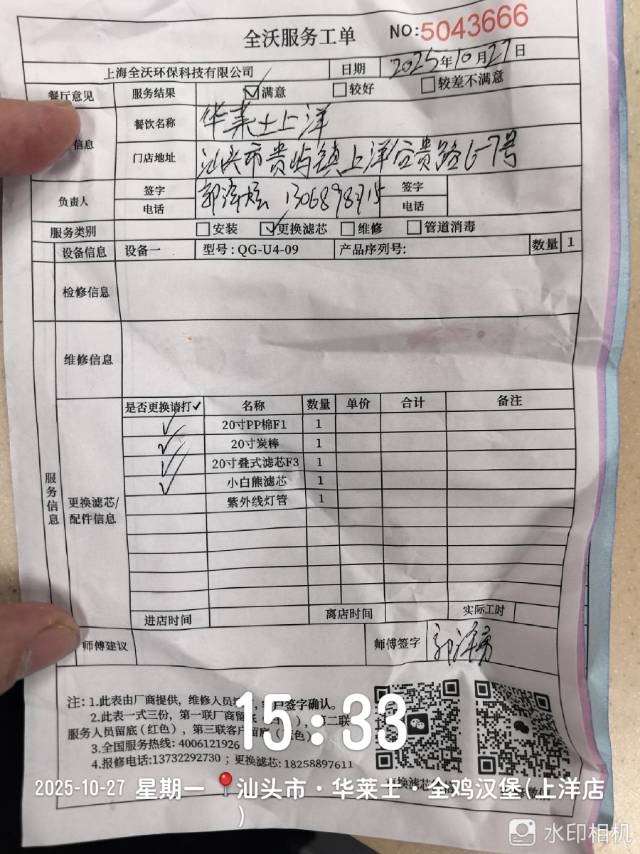 全沃服务工单
NO:5043666
上海全沃环保科技有限公司 日期 2025年10月27日
餐厅意见 服务结果 ☑满意 □较好 □较差不满意
信息 餐饮名称 华莱士上洋
门店地址 汕头市贵屿镇上洋 贵路6-7号
负责人 签字 签字
电话 电话
服务类别 □安装 ☑更换滤芯 □维修 □管道消毒
设备信息 设备一 型号:QG-U4-09 产品序列号: 数量 1
检修信息
维修信息
服务信息
更换滤芯/配件信息
是否更换请打✓ 名称 数量 单价 合计 备注
✓ 20寸PP棉F1 1
✓ 20寸炭棒 1
✓ 20寸叠式滤芯F3 1
✓ 小白熊滤芯 1
紫外线灯管 1
进店时间 离店时间 实际工时
师傅建议 师傅签字
注:1.此表由厂商提供,维修人员 签字确认。
2.此表一式三份,第一联厂商留底 第二联
服务人员留底(红色),第三联客户留底
3.全国服务热线:4006121926
4.报修电话:13732292730;更换滤芯:18258897611
更换滤芯
15:33
2025-10-27 星期一 汕头市·华莱士·全鸡汉堡(上洋店
)
水印相机